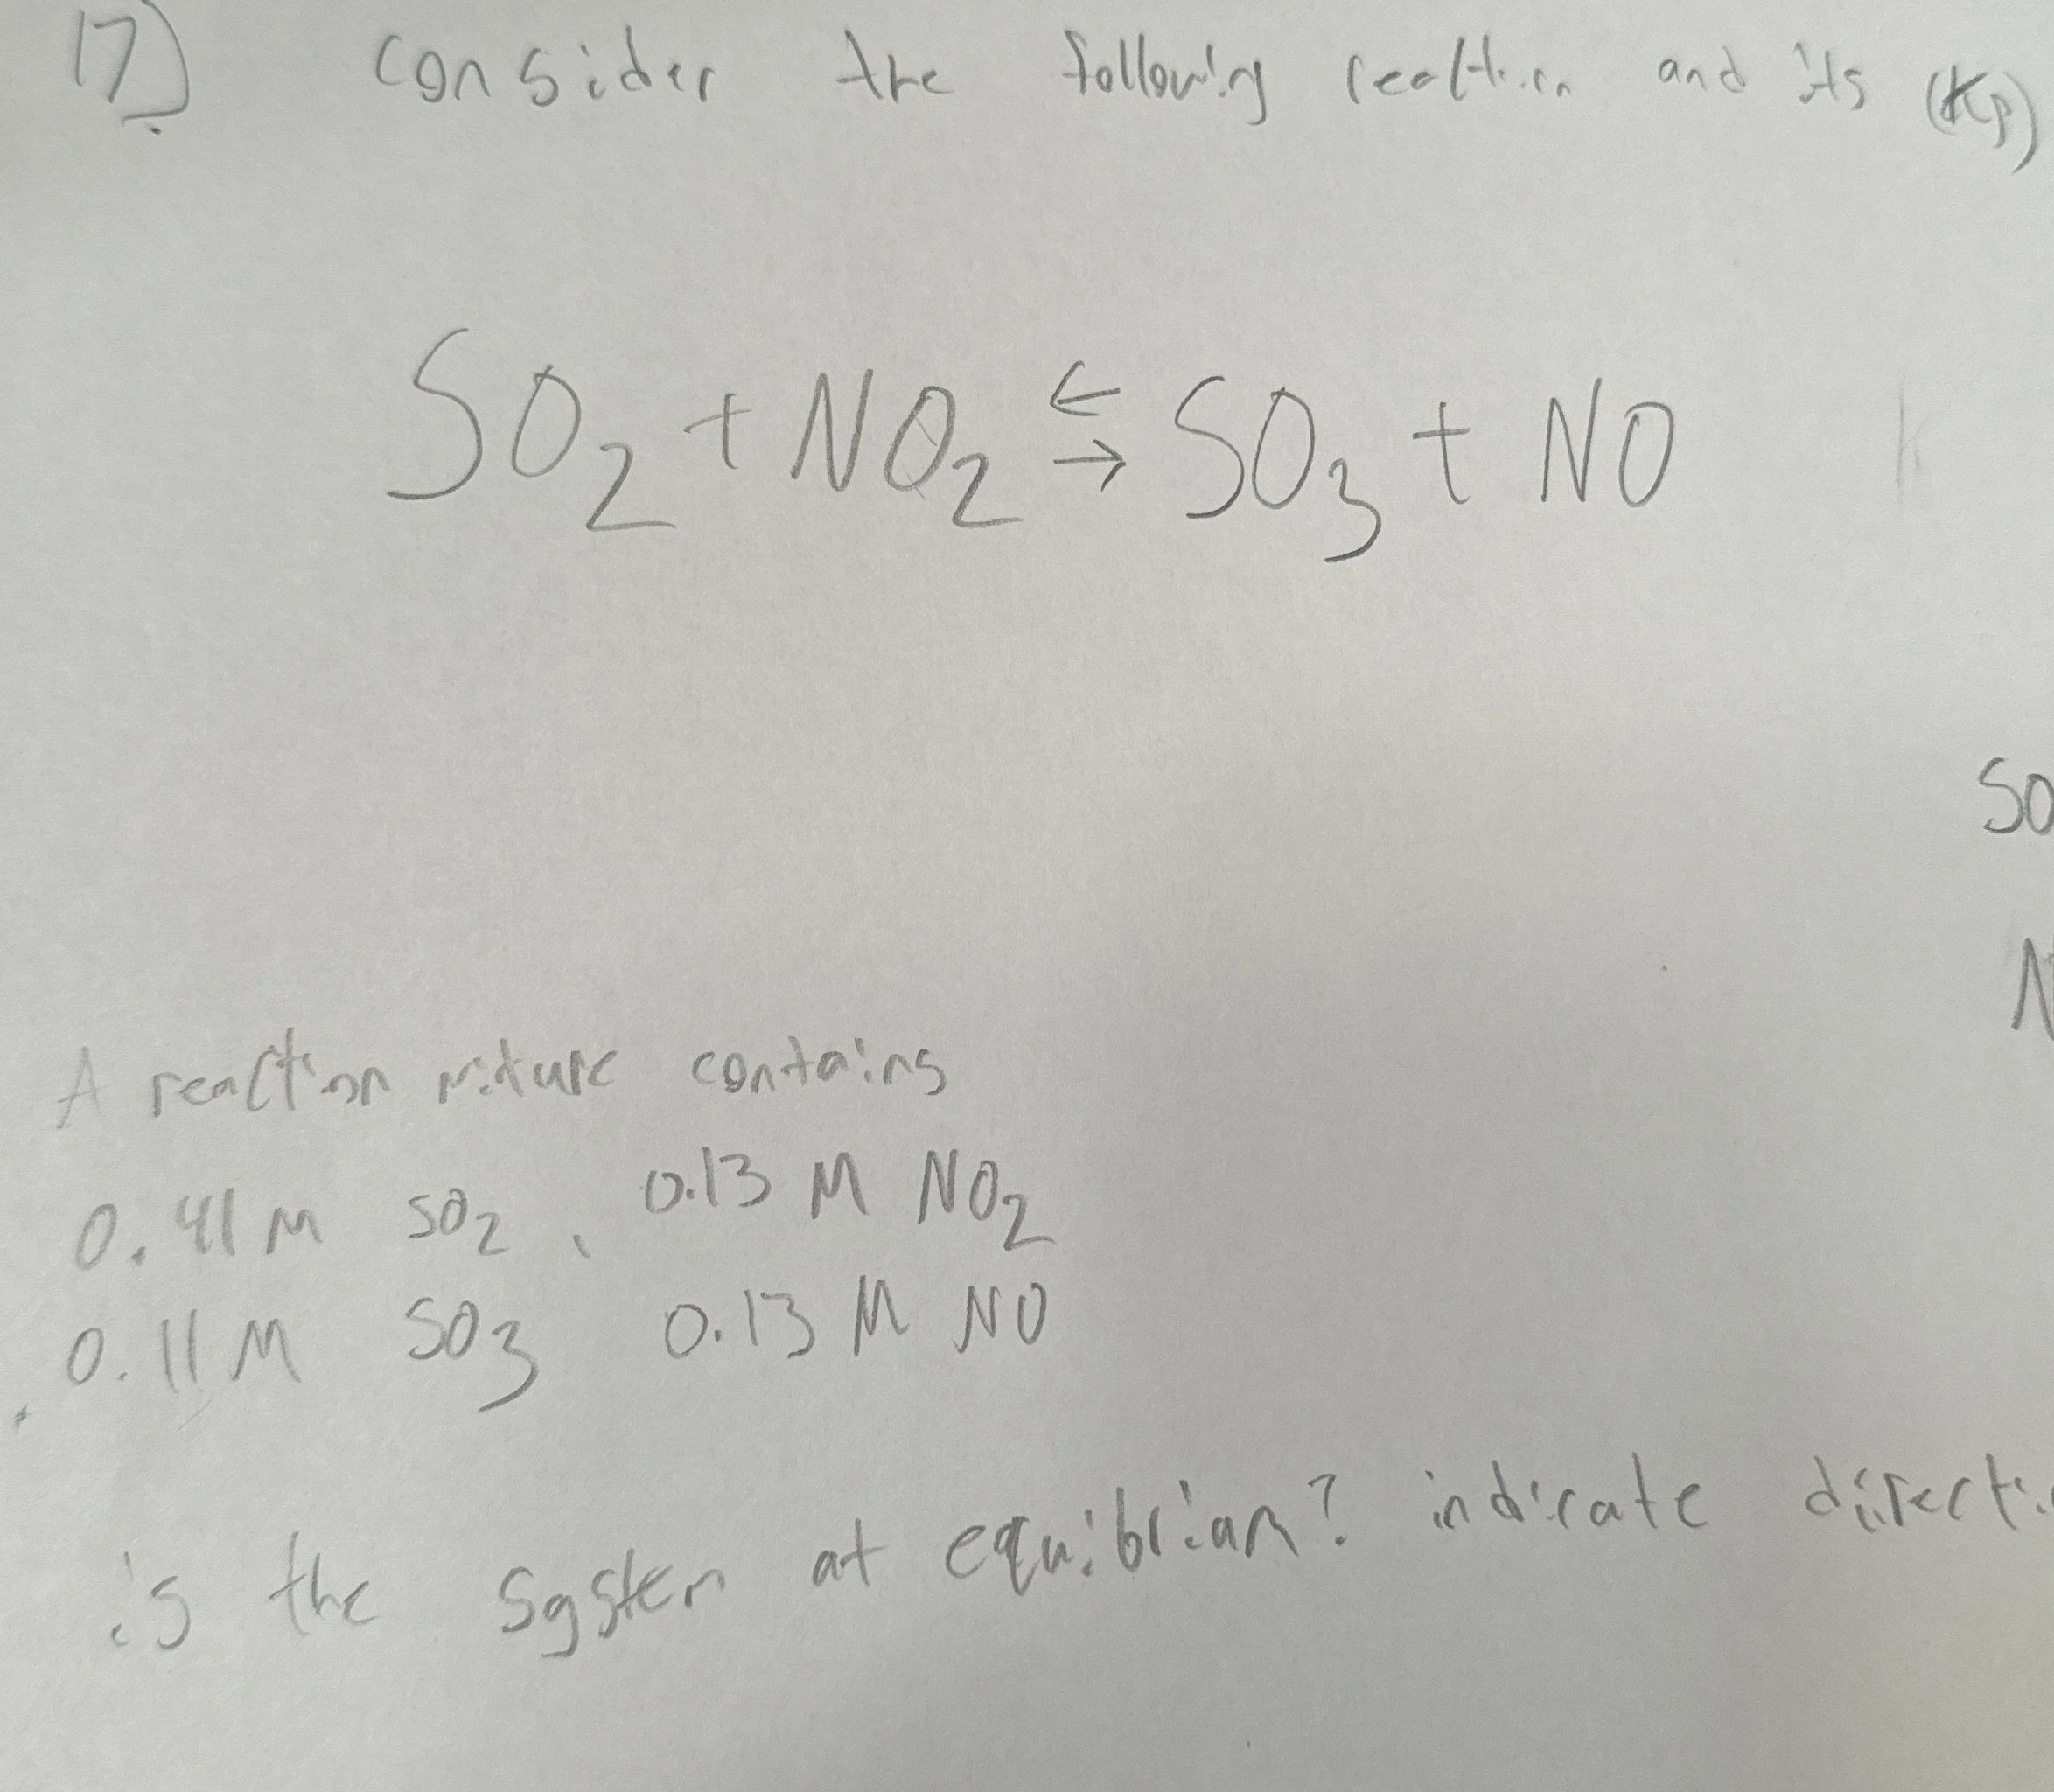 17) Consider the following reaction and its (Kp)
SO2 + NO2 ⇄ SO3 + NO
SO
N
A reaction mixture contains
0.41 M SO2, 0.13 M NO2
0.11 M SO3 0.13 M NO
is the system at equibriam? indicate directi